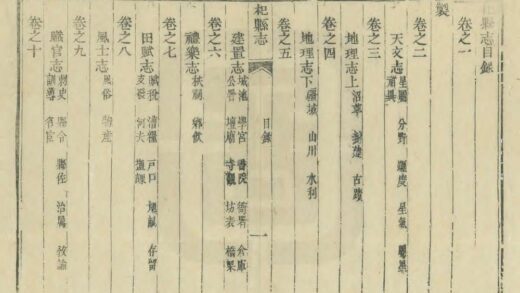 縣志目錄
卷之一
製
卷之二
天文志
星圖 分野 躔度 星氣
卷之三
地理志上
沿革 封建 古蹟
卷之四
地理志下
疆域 山川 水利
卷之五
杞縣志
目錄
一
建置志
城池 學宮 書院 衙署 倉庫
公署 壇廟 寺觀 坊表 橋梁
卷之六
禮樂志
秩祠 鄉飲
卷之七
田賦志
賦稅 漕糧 戶口 存留
支發 河夫 鹽課
卷之八
風土志
風俗 物產
卷之九
職官志
刺史 縣令 縣佐 治屬 教諭
訓導 名宦
卷之十